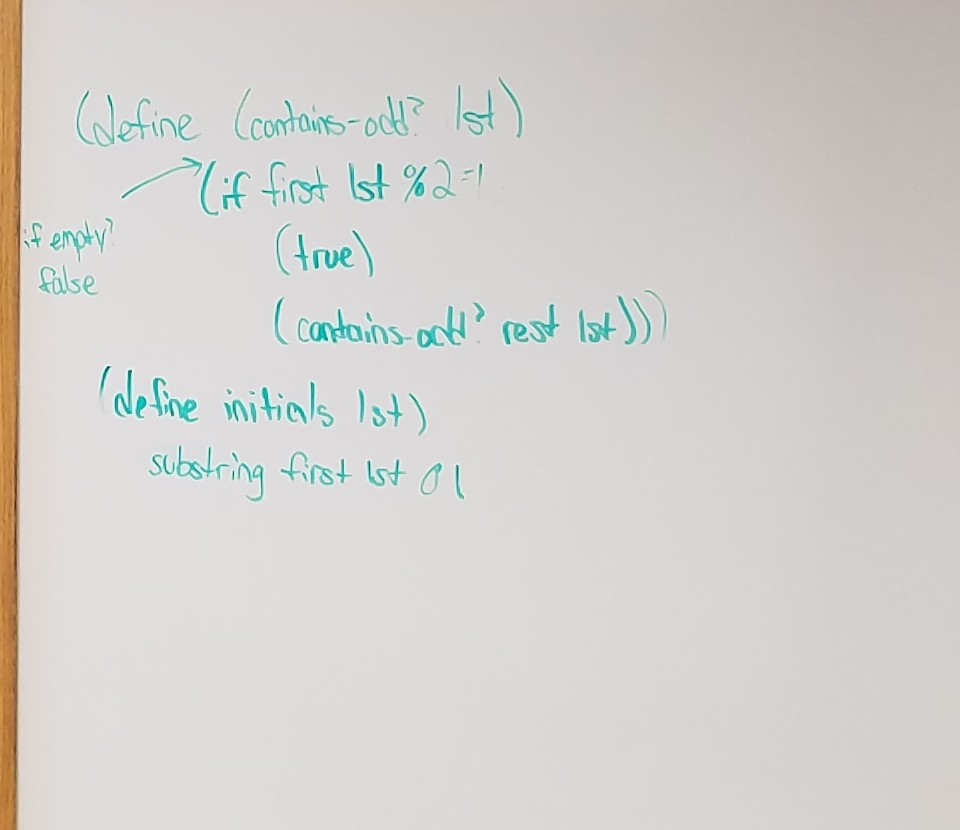 (define (contains-odd? lst)
(if first lst %2=1
if empty?
false
(true)
(contains-odd? rest lst)))
(define initials lst)
substring first lst 0 1